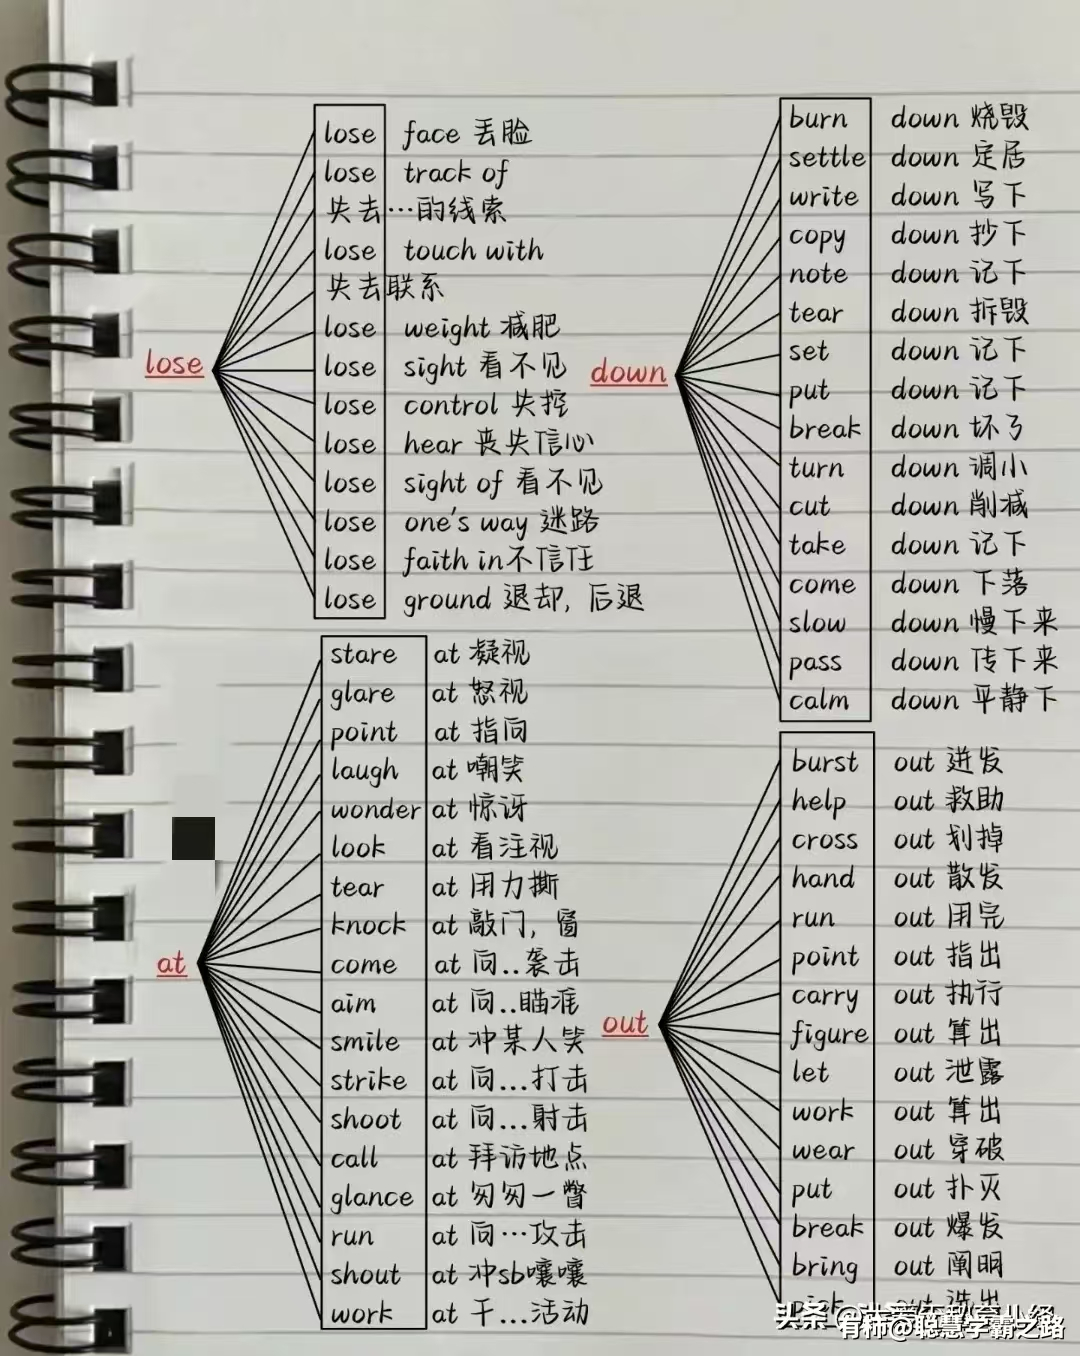 lose
lose face 丢脸
lose track of
失去…的线索
lose touch with
失去联系
lose weight 减肥
lose sight 看不见
lose control 失控
lose hear 丧失信心
lose sight of 看不见
lose one's way 迷路
lose faith in不信任
lose ground 退却, 后退
down
burn down 烧毁
settle down 定居
write down 写下
copy down 抄下
note down 记下
tear down 拆毁
set down 记下
put down 记下
break down 坏了
turn down 调小
cut down 削减
take down 记下
come down 下落
slow down 慢下来
pass down 传下来
calm down 平静下
at
stare at 凝视
glare at 怒视
point at 指向
laugh at 嘲笑
wonder at 惊讶
look at 看注视
tear at 用力撕
knock at 敲门, 窗
come at 向..袭击
aim at 向..瞄准
smile at 冲某人笑
strike at 向...打击
shoot at 向...射击
call at 拜访地点
glance at 匆匆一瞥
run at 向…攻击
shout at 冲sb嚷嚷
work at 干...活动
out
burst out 迸发
help out 救助
cross out 划掉
hand out 散发
run out 用完
point out 指出
carry out 执行
figure out 算出
let out 泄露
work out 算出
wear out 穿破
put out 扑灭
break out 爆发
bring out 阐明
pick out 选出
头条
有柿@聪慧学霸之路